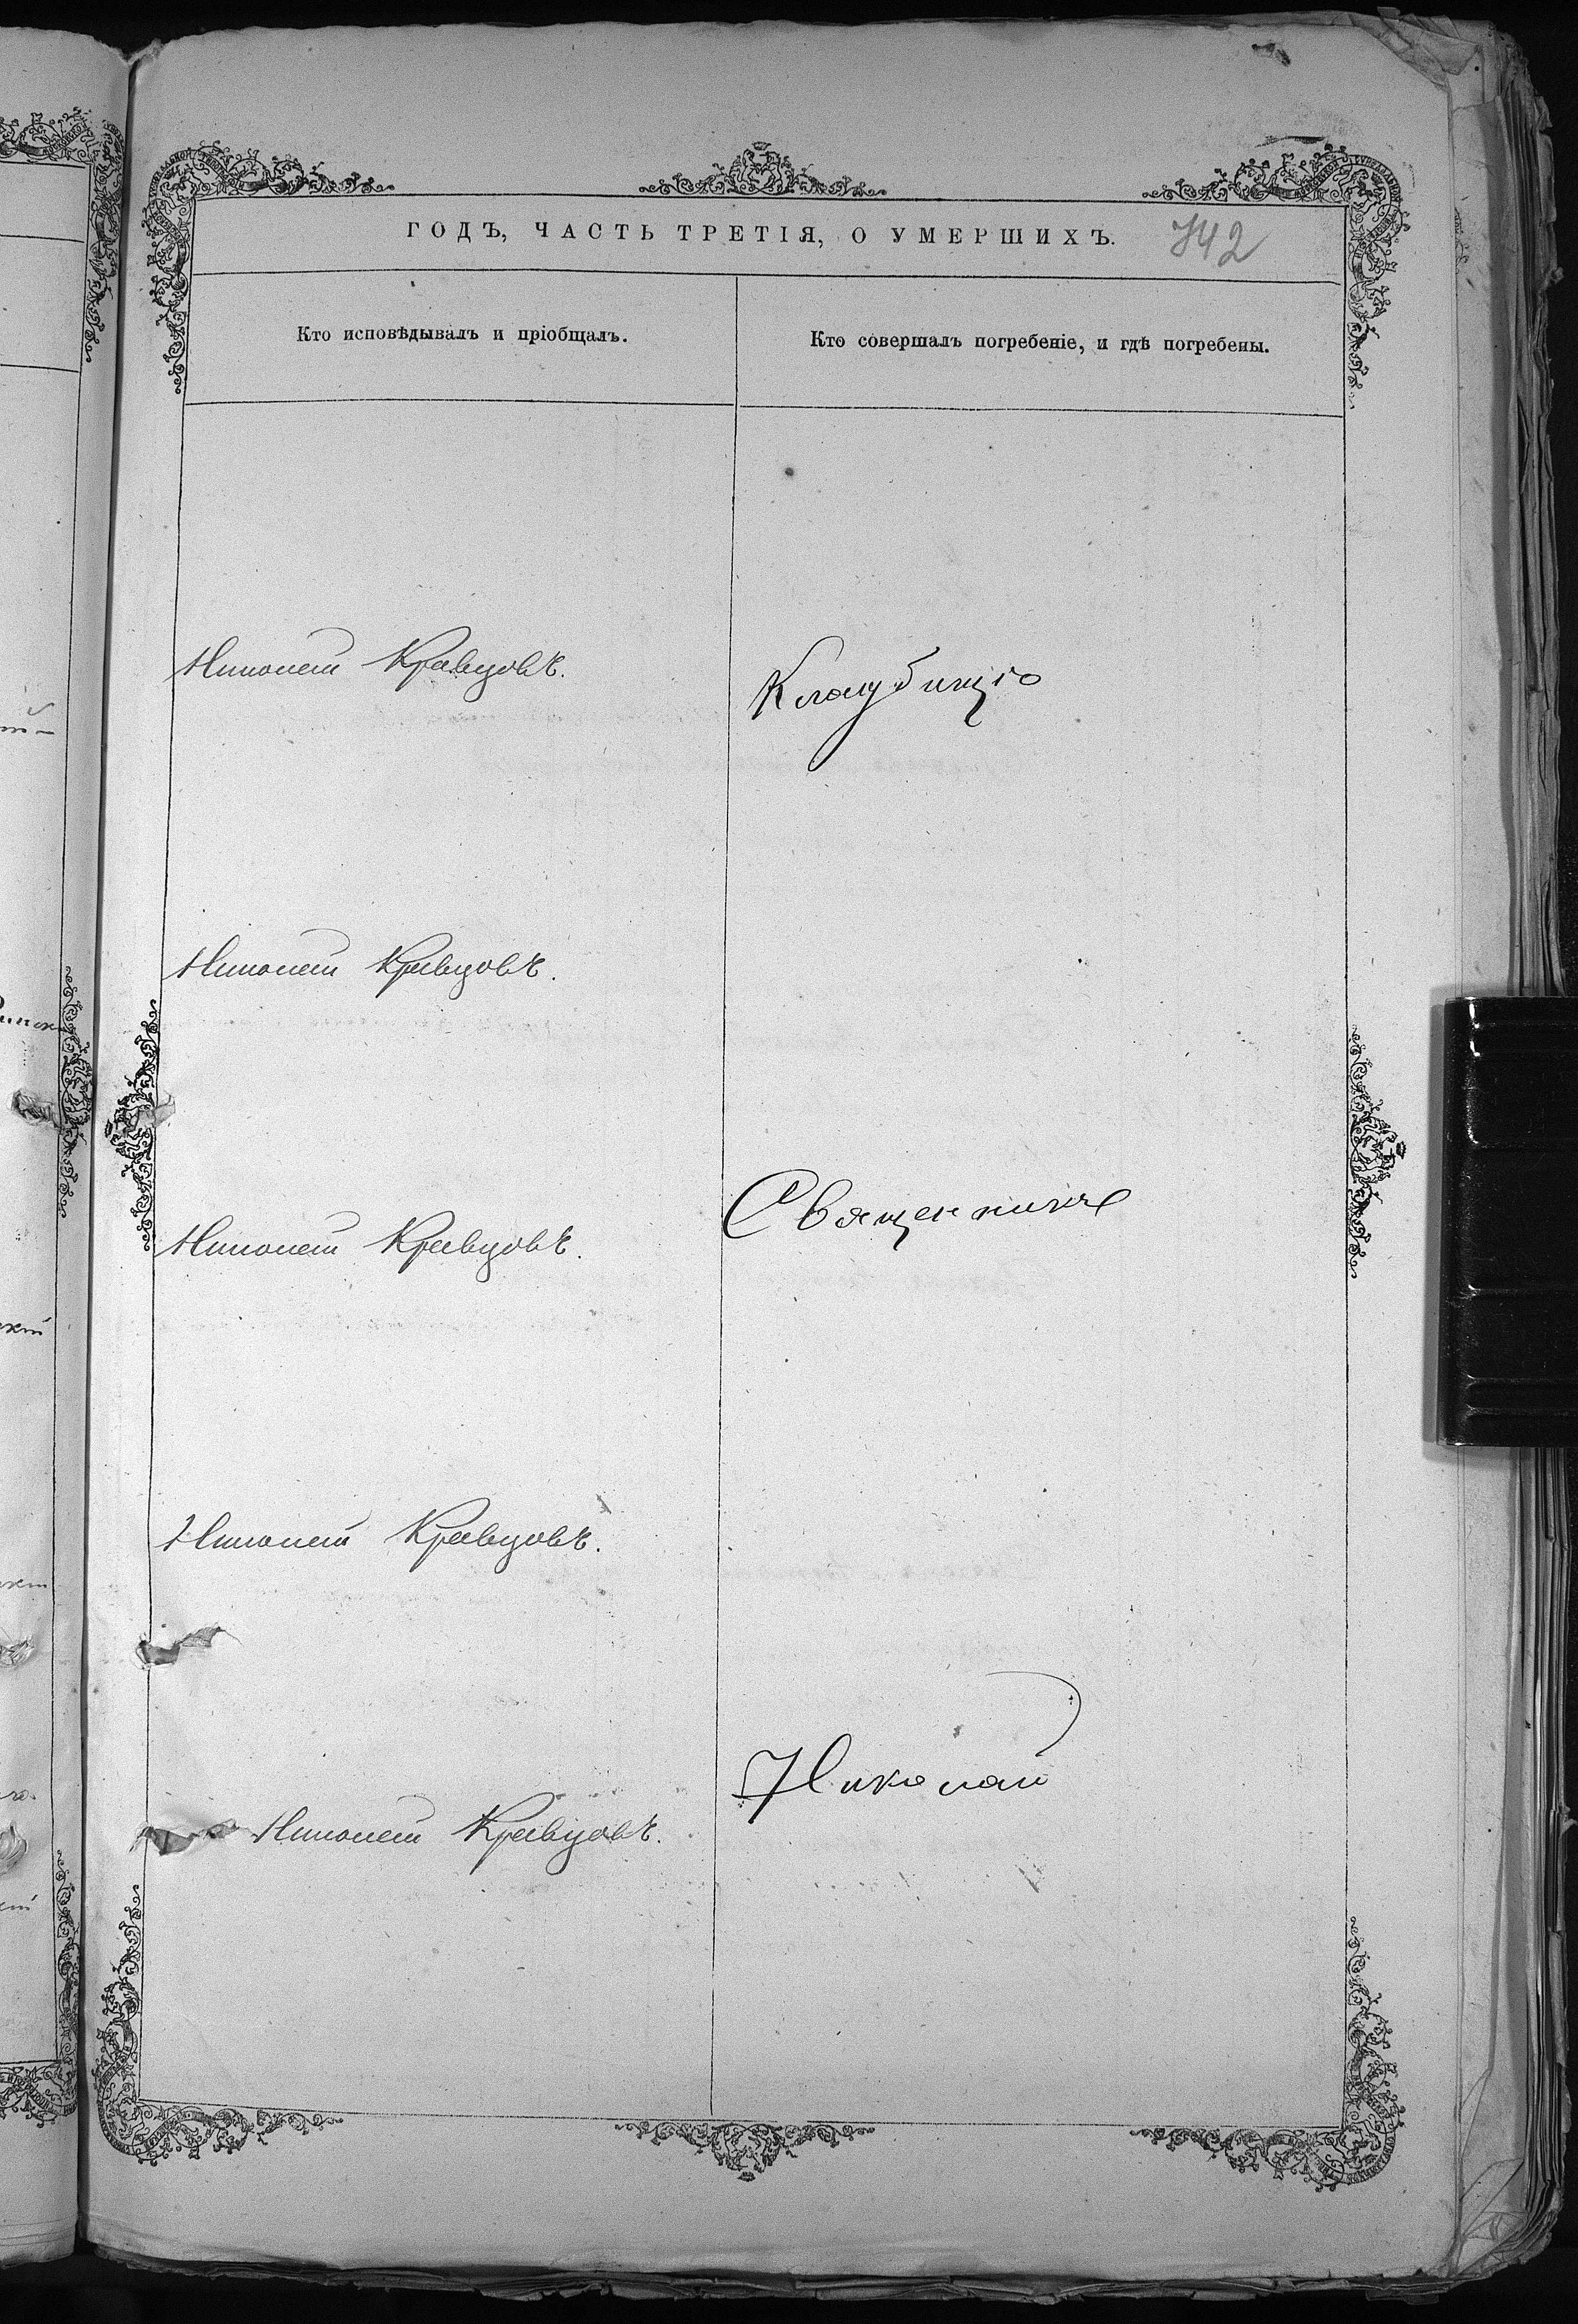 ГОДЪ, ЧАСТЬ ТРЕТІЯ, О УМЕРШИХЪ. 742
Кто исповѣдывалъ и пріобщалъ.
Кто совершалъ погребеніе, и гдѣ погребены.
Николай Кравцовъ.
Кладбищѣ
Николай Кравцовъ.
Николай Кравцовъ.
Священникъ
Николай Кравцовъ.
Николай
Николай Кравцовъ.